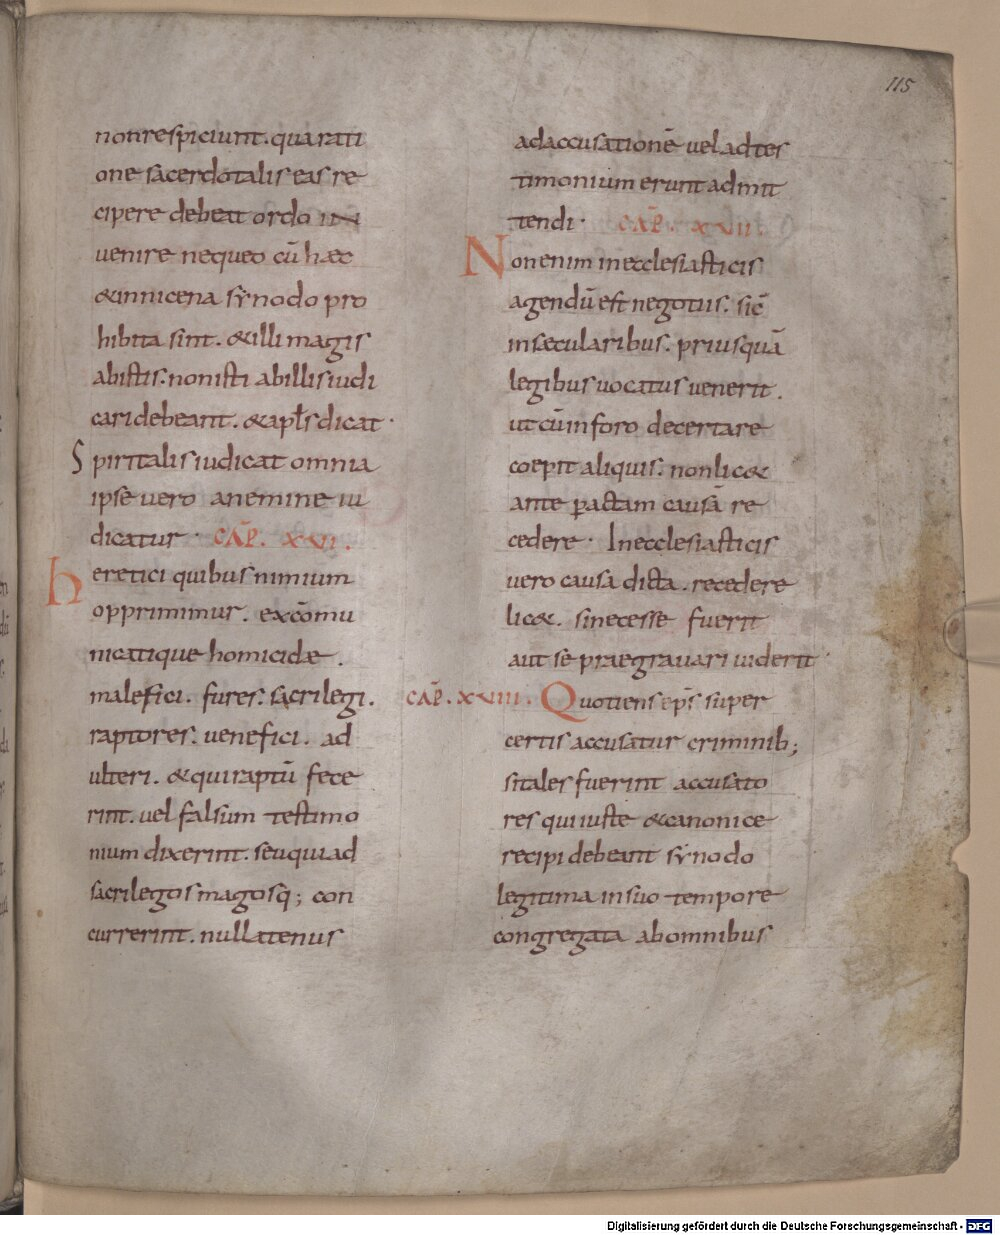 115
non respiciunt. qua rati
one sacerdotalis eas re
cipere debeat ordo in
venire nequeo cū haec
& in nicena synodo pro
hibita sint. & illi magis
ab istis. non isti ab illis iudi
cari debeant. & apłs dicat·
Spiritalis iudicat omnia
ipse vero a nemine iu
dicatur· CAP̄. XVI.
heretici quibus nimium
opprimimur. excōmu
nicatique homicidæ.
malefici. fures. sacrilegi.
raptores. venefici. ad
ulteri. & qui raptū fece
rint. vel falsum testimo
nium dixerint. seu qui ad
sacrilegos magosq; con
currerint. nullatenus
ad accusationē vel ad tes
timonium erunt admit
tendi· CAP̄. XVII.
Non enim in ecclesiasticis
agendū est negotiis. sic̄
in sæcularibus. priusquā
legibus vocatus venerit.
ut cū in foro decertare
coepit aliquis. non lic&
ante peractam causā re
cedere· In ecclesiasticis
vero causa dicta. recedere
lic&. si necesse fuerit
aut se praegravari viderit·
CAP̄. XVIII. Quotiens ep̄s super
certis accusatur criminib;
si tales fuerint accusato
res qui iuste & canonice
recipi debeant synodo
legitima in suo tempore
congregata ab omnibus
Digitalisierung gefördert durch die Deutsche Forschungsgemeinschaft - DFG